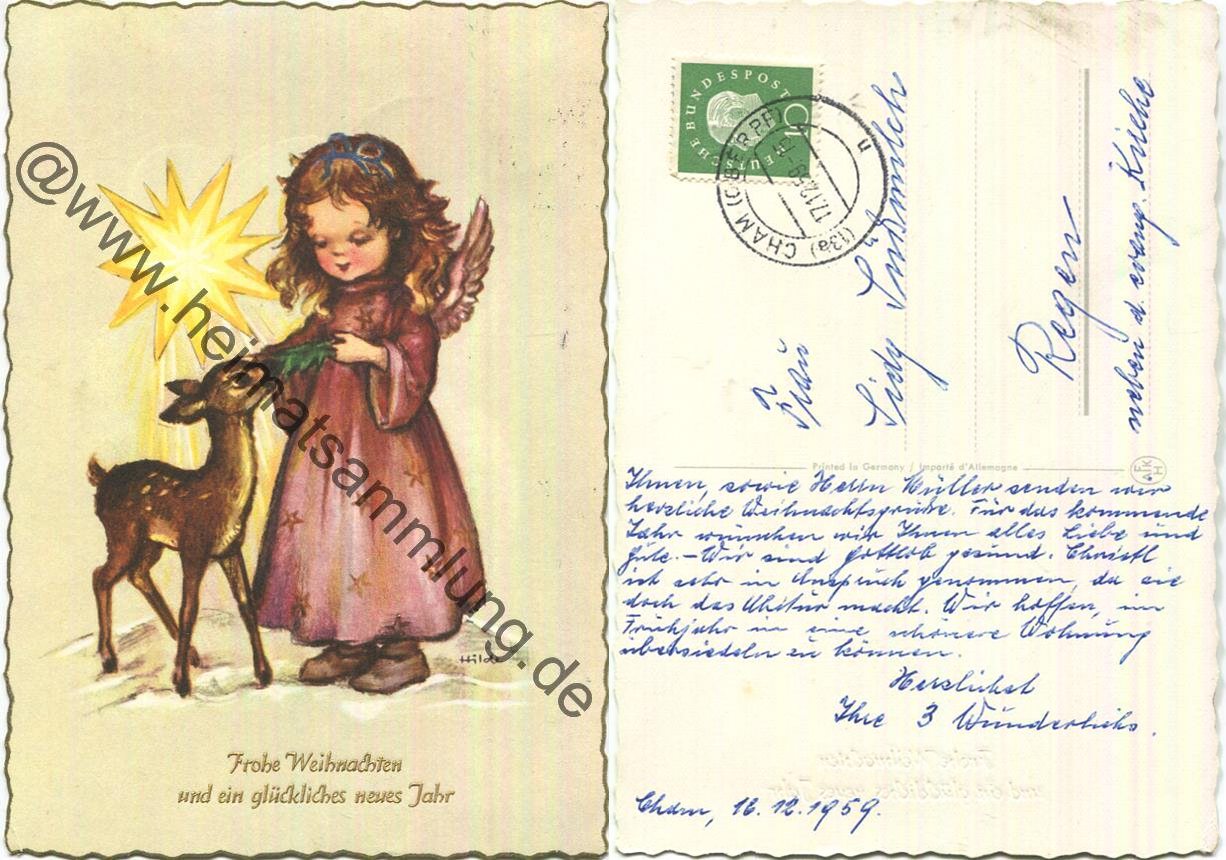 @www.heimatsammlung.de
Hilde
Frohe Weihnachten
und ein glückliches neues Jahr
DEUTSCHE BUNDESPOST
(13a) CHAM (OBERPF)
17.12.59
u
Frau
Sidy Süßmilch
Regen
neben d. evang. Kirche
Printed in Germany / Importé d'Allemagne
Ihnen, sowie Herrn Müller senden wir
herzliche Weihnachtsgrüße. Für das kommende
Jahr wünschen wir Ihnen alles Liebe und
Gute. - Wir sind gottlob gesund. Christl
ist sehr in Anspruch genommen, da sie
doch das Abitur macht. Wir hoffen, im
Frühjahr in eine schönere Wohnung
übersiedeln zu können.
Herzlichst
Ihre 3 Wunderlichs.
Cham, 16.12.1959.